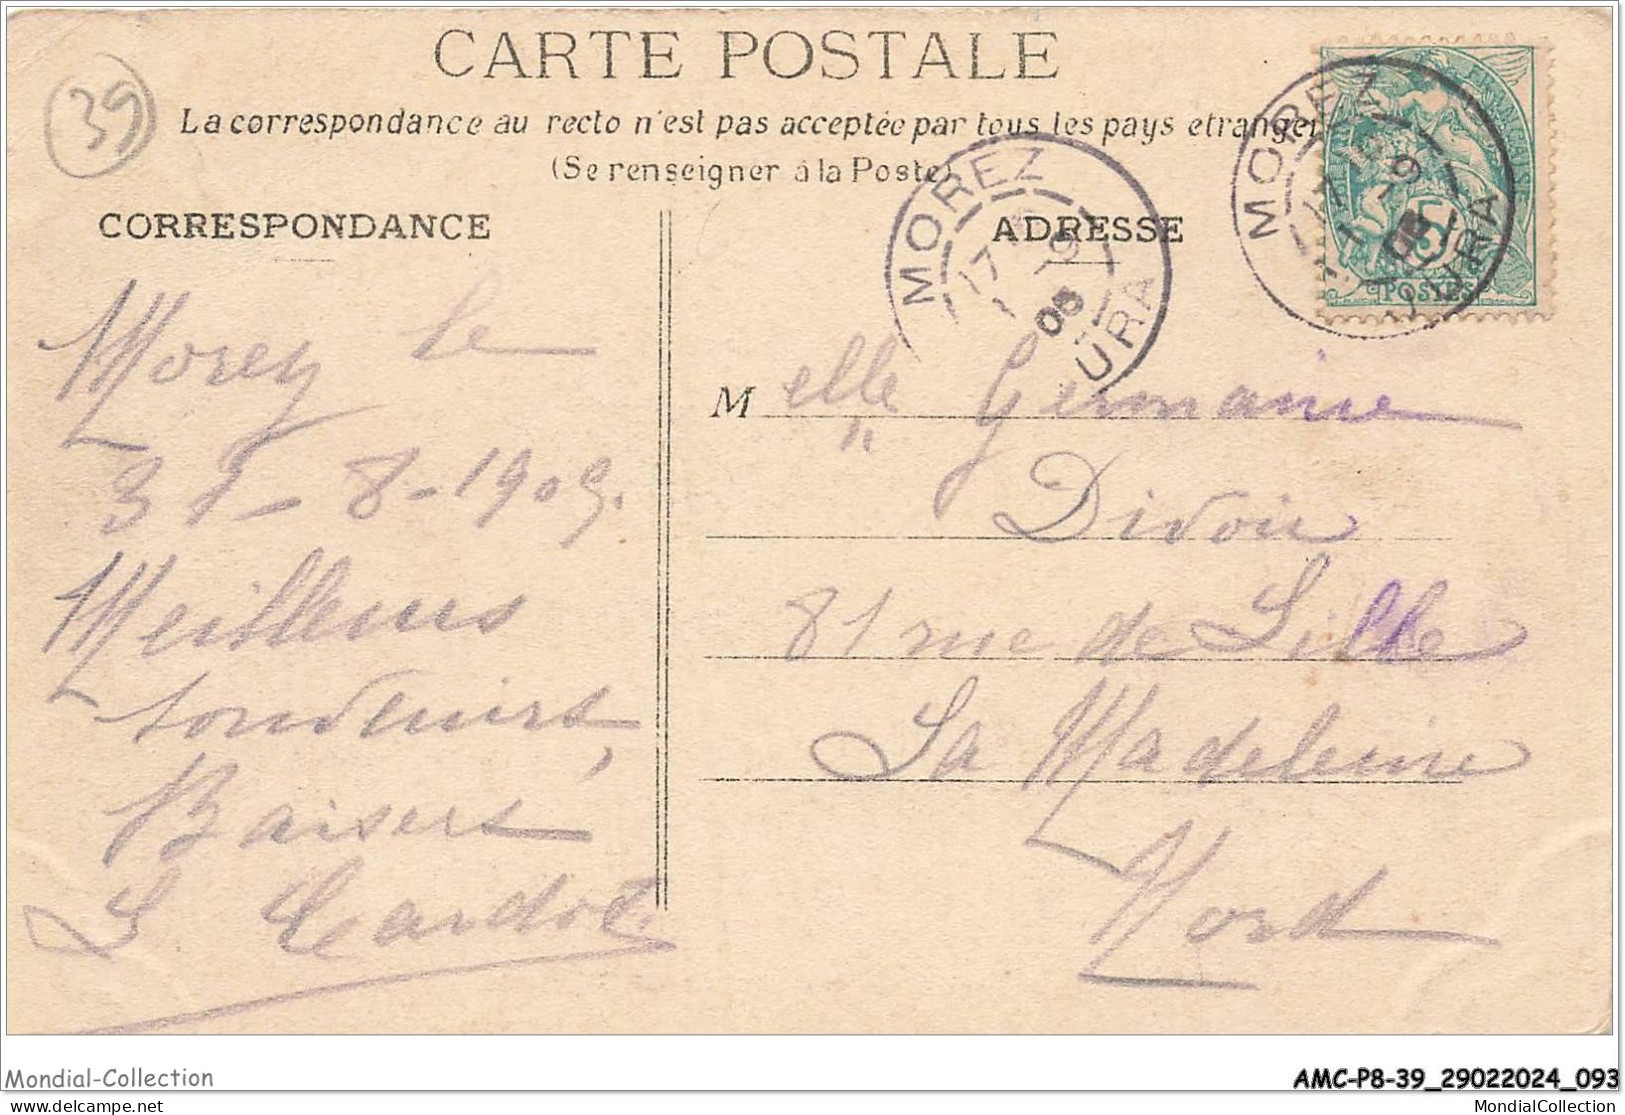 CARTE POSTALE
39
La correspondance au recto n'est pas acceptée par tous les pays etranger
(Se renseigner à la Poste)
CORRESPONDANCE
ADRESSE
MOREZ
17
1 9
05
JURA
MOREZ
JURA
5
POSTES
Morez le
31 - 8 - 1905.
Meilleurs
souvenirs,
Baisers
L Cardot
Melle Germaine
Divoir
81 rue de Lille
La Madeleine
Nord
Mondial-Collection
AMC-P8-39_29022024_093
www.delcampe.net
MondialCollection